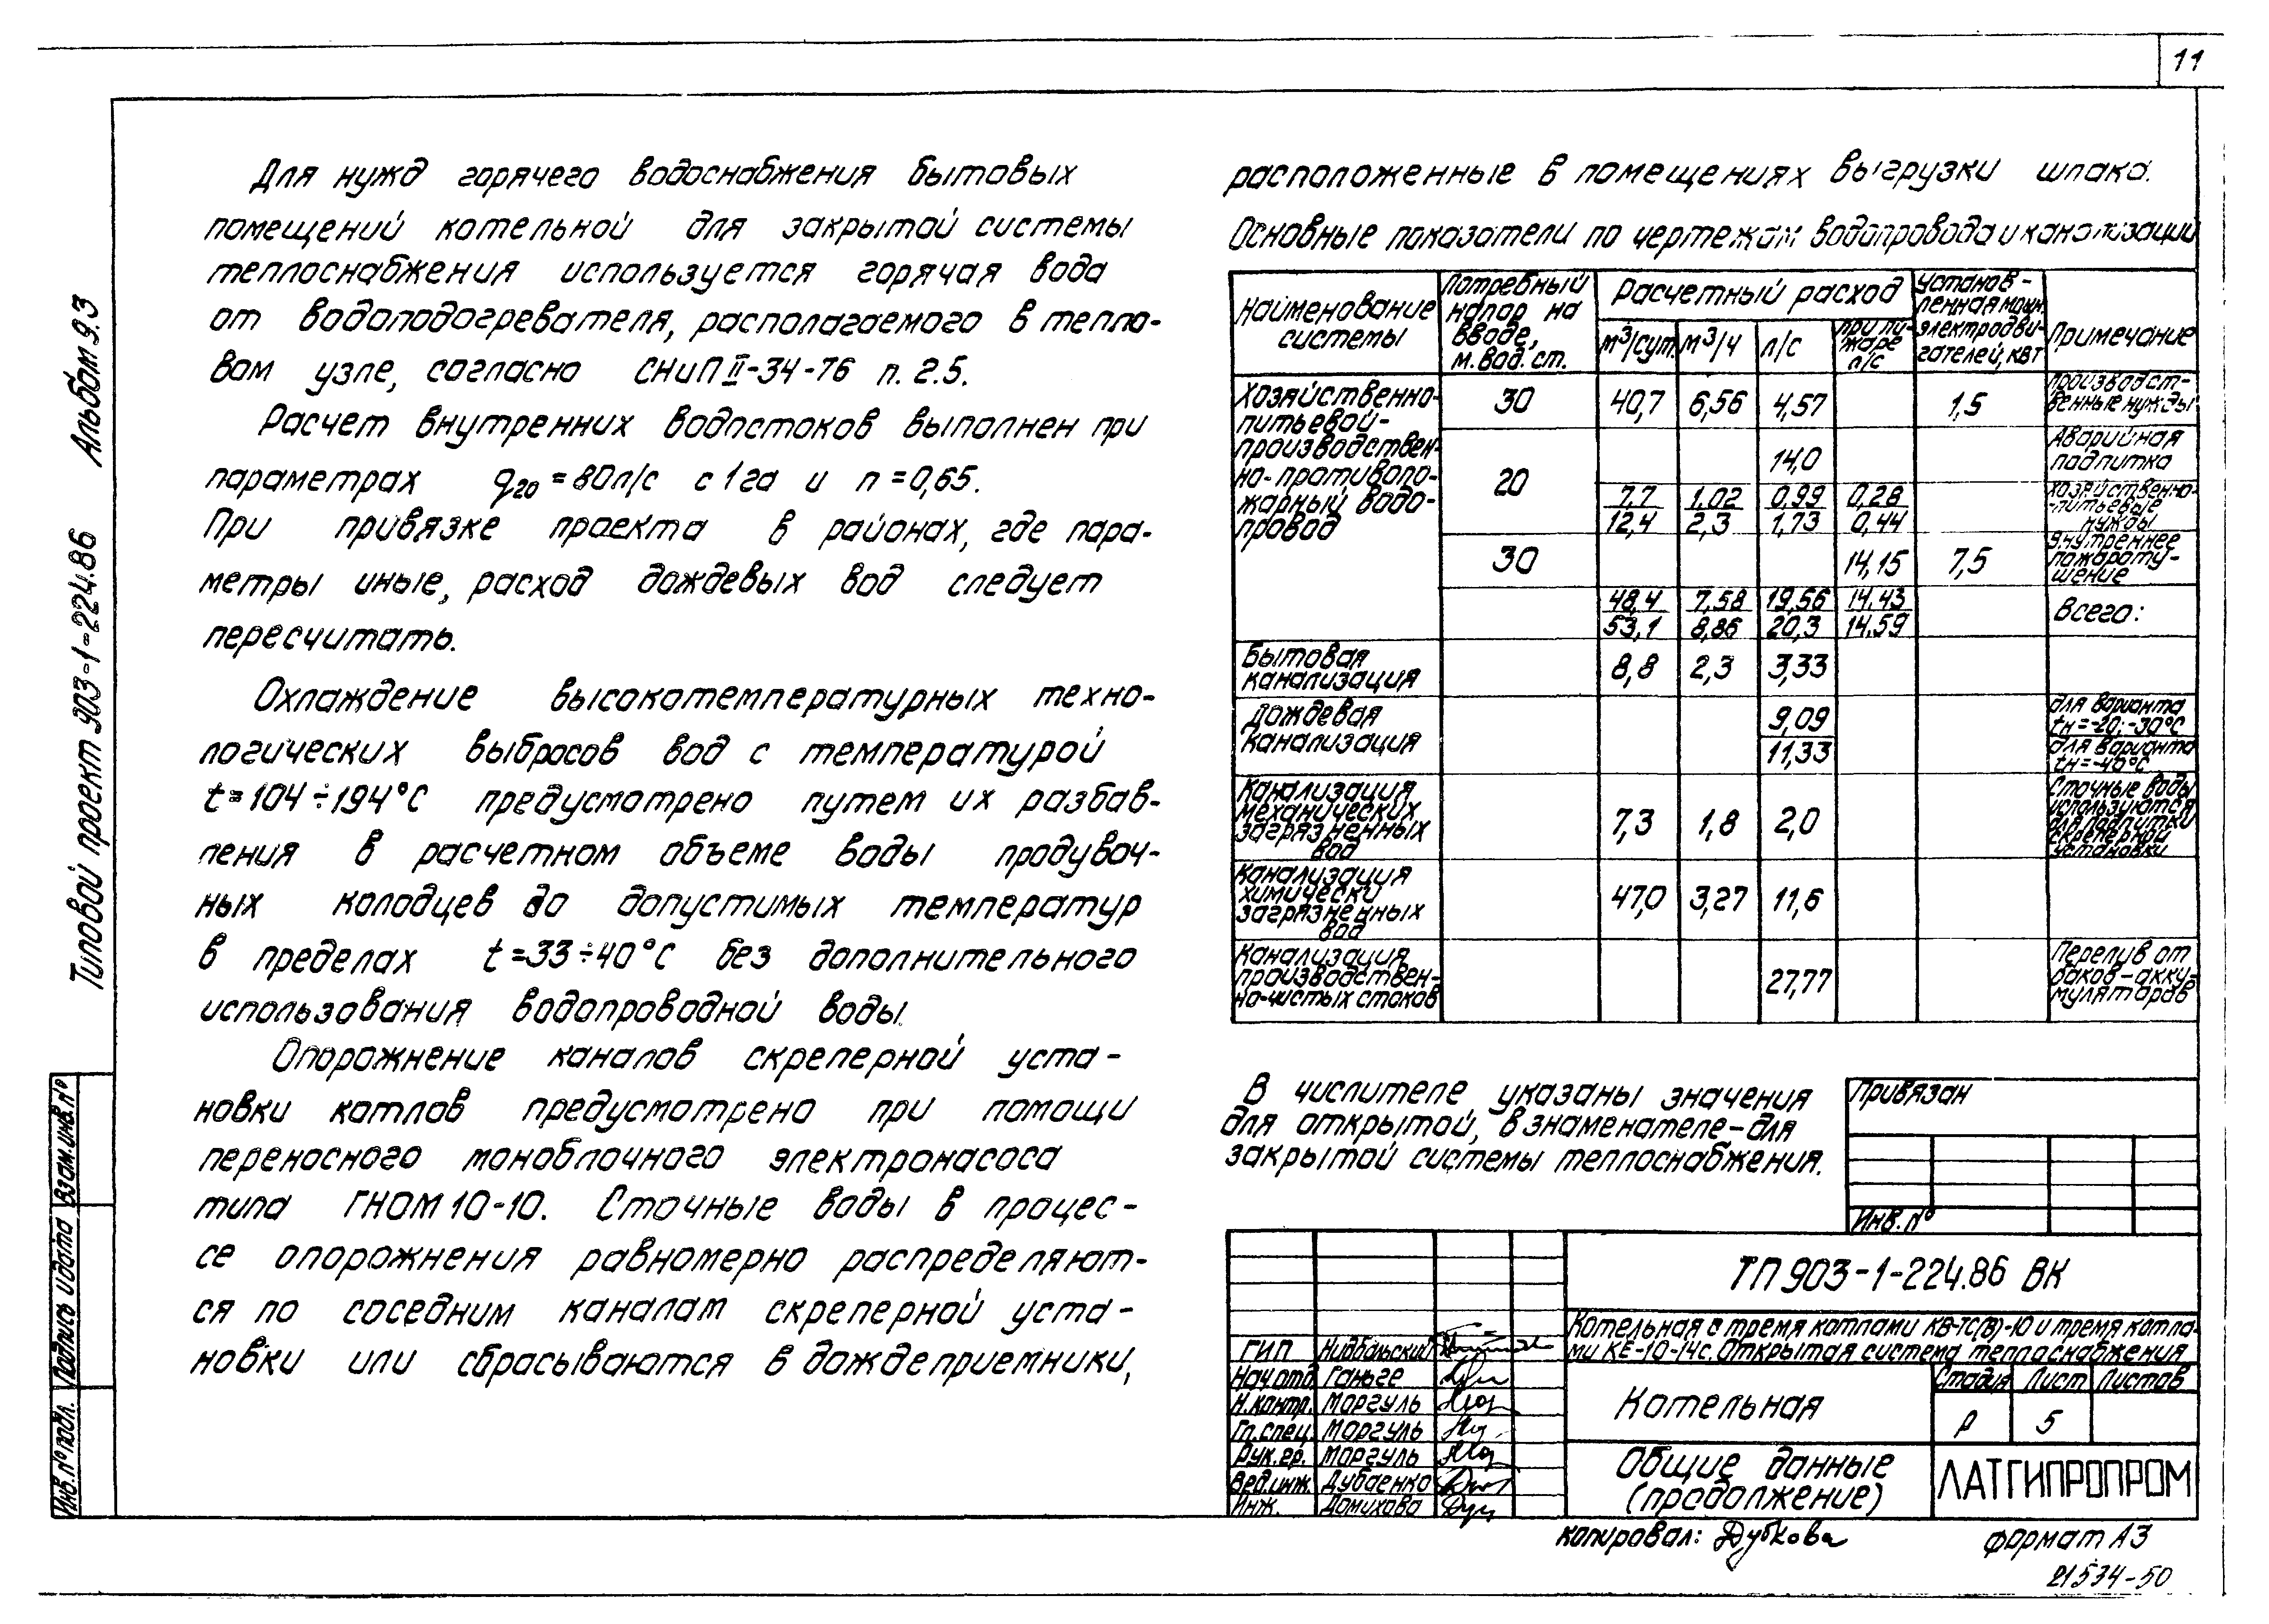 11
Для нужд горячего водоснабжения бытовых
помещений котельной для закрытой системы
теплоснабжения используется горячая вода
от водоподогревателя, располагаемого в тепло-
вом узле, согласно СНиП II-34-76 п. 2.5.
Расчет внутренних водостоков выполнен при
параметрах q20 = 80л/с с 1га и n = 0,65.
При привязке проекта в районах, где пара-
метры иные, расход дождевых вод следует
пересчитать.
Охлаждение высокотемпературных техно-
логических выбросов вод с температурой
t=104÷194°С предусмотрено путем их разбав-
ления в расчетном объеме воды продувоч-
ных колодцев до допустимых температур
в пределах t=33÷40°С без дополнительного
использования водопроводной воды.
Опорожнение каналов скреперной уста-
новки котлов предусмотрено при помощи
переносного моноблочного электронасоса
типа ГНОМ 10-10. Сточные воды в процес-
се опорожнения равномерно распределяют-
ся по соседним каналам скреперной уста-
новки или сбрасываются в дождеприемники,
расположенные в помещениях выгрузки шлака.
Основные показатели по чертежам водопровода и канализации
Наименование системы
Потребный напор на вводе, м.вод.ст.
Расчетный расход
м³/сут. м³/ч л/с при пожаре л/с
Установ-ленная мощн. электродви-гателей, квт
Примечание
Хозяйственно-питьевой-производствен-но-противопо-жарный водо-провод
30 40,7 6,56 4,57 1,5 Производст-венные нужды
20 14,0 Аварийная подпитка
7,7 1,02 0,99 0,28 Хозяйственно-питьевые нужды
12,4 2,3 1,73 0,44
30 14,15 7,5 Внутреннее пожароту-шение
48,4 7,58 19,56 14.43 Всего:
53,1 8,86 20,3 14.59
Бытовая канализация 8,8 2,3 3,33
Дождевая канализация 9,09 для варианта tн=-20;-30°С
11,33 для варианта tн=-40°С
Канализация механических загрязненных вод 7,3 1,8 2,0 Сточные воды используются для подпитки скреперной установки
Канализация химически загрязненных вод 47,0 3,27 11,6
Канализация производствен-но-чистых стоков 27,77 Перелив от баков-акку-муляторов
В числителе указаны значения
для открытой, в знаменателе-для
закрытой системы теплоснабжения.
Привязан
Инв.№
ТП 903-1-224.86 ВК
Котельная с тремя котлами КВ-ТС(В)-10 и тремя котла-
ми КЕ-10-14с. Открытая система теплоснабжения
ГИП Нидбальский
Нач.отд. Ганьге
Н.контр. Моргуль
Гл.спец. Моргуль
Рук.гр. Моргуль
Вед.инж. Дубаенко
Инж. Домихова
Котельная
Стадия Лист Листов
Р 5
Общие данные
(продолжение)
ЛАТГИПРОПРОМ
Копировал: Дубкова
формат А3
21534-50
Типовой проект 903-1-224.86 Альбом 9.3
Взам.инв.№
Подпись и дата
Инв.№ подл.